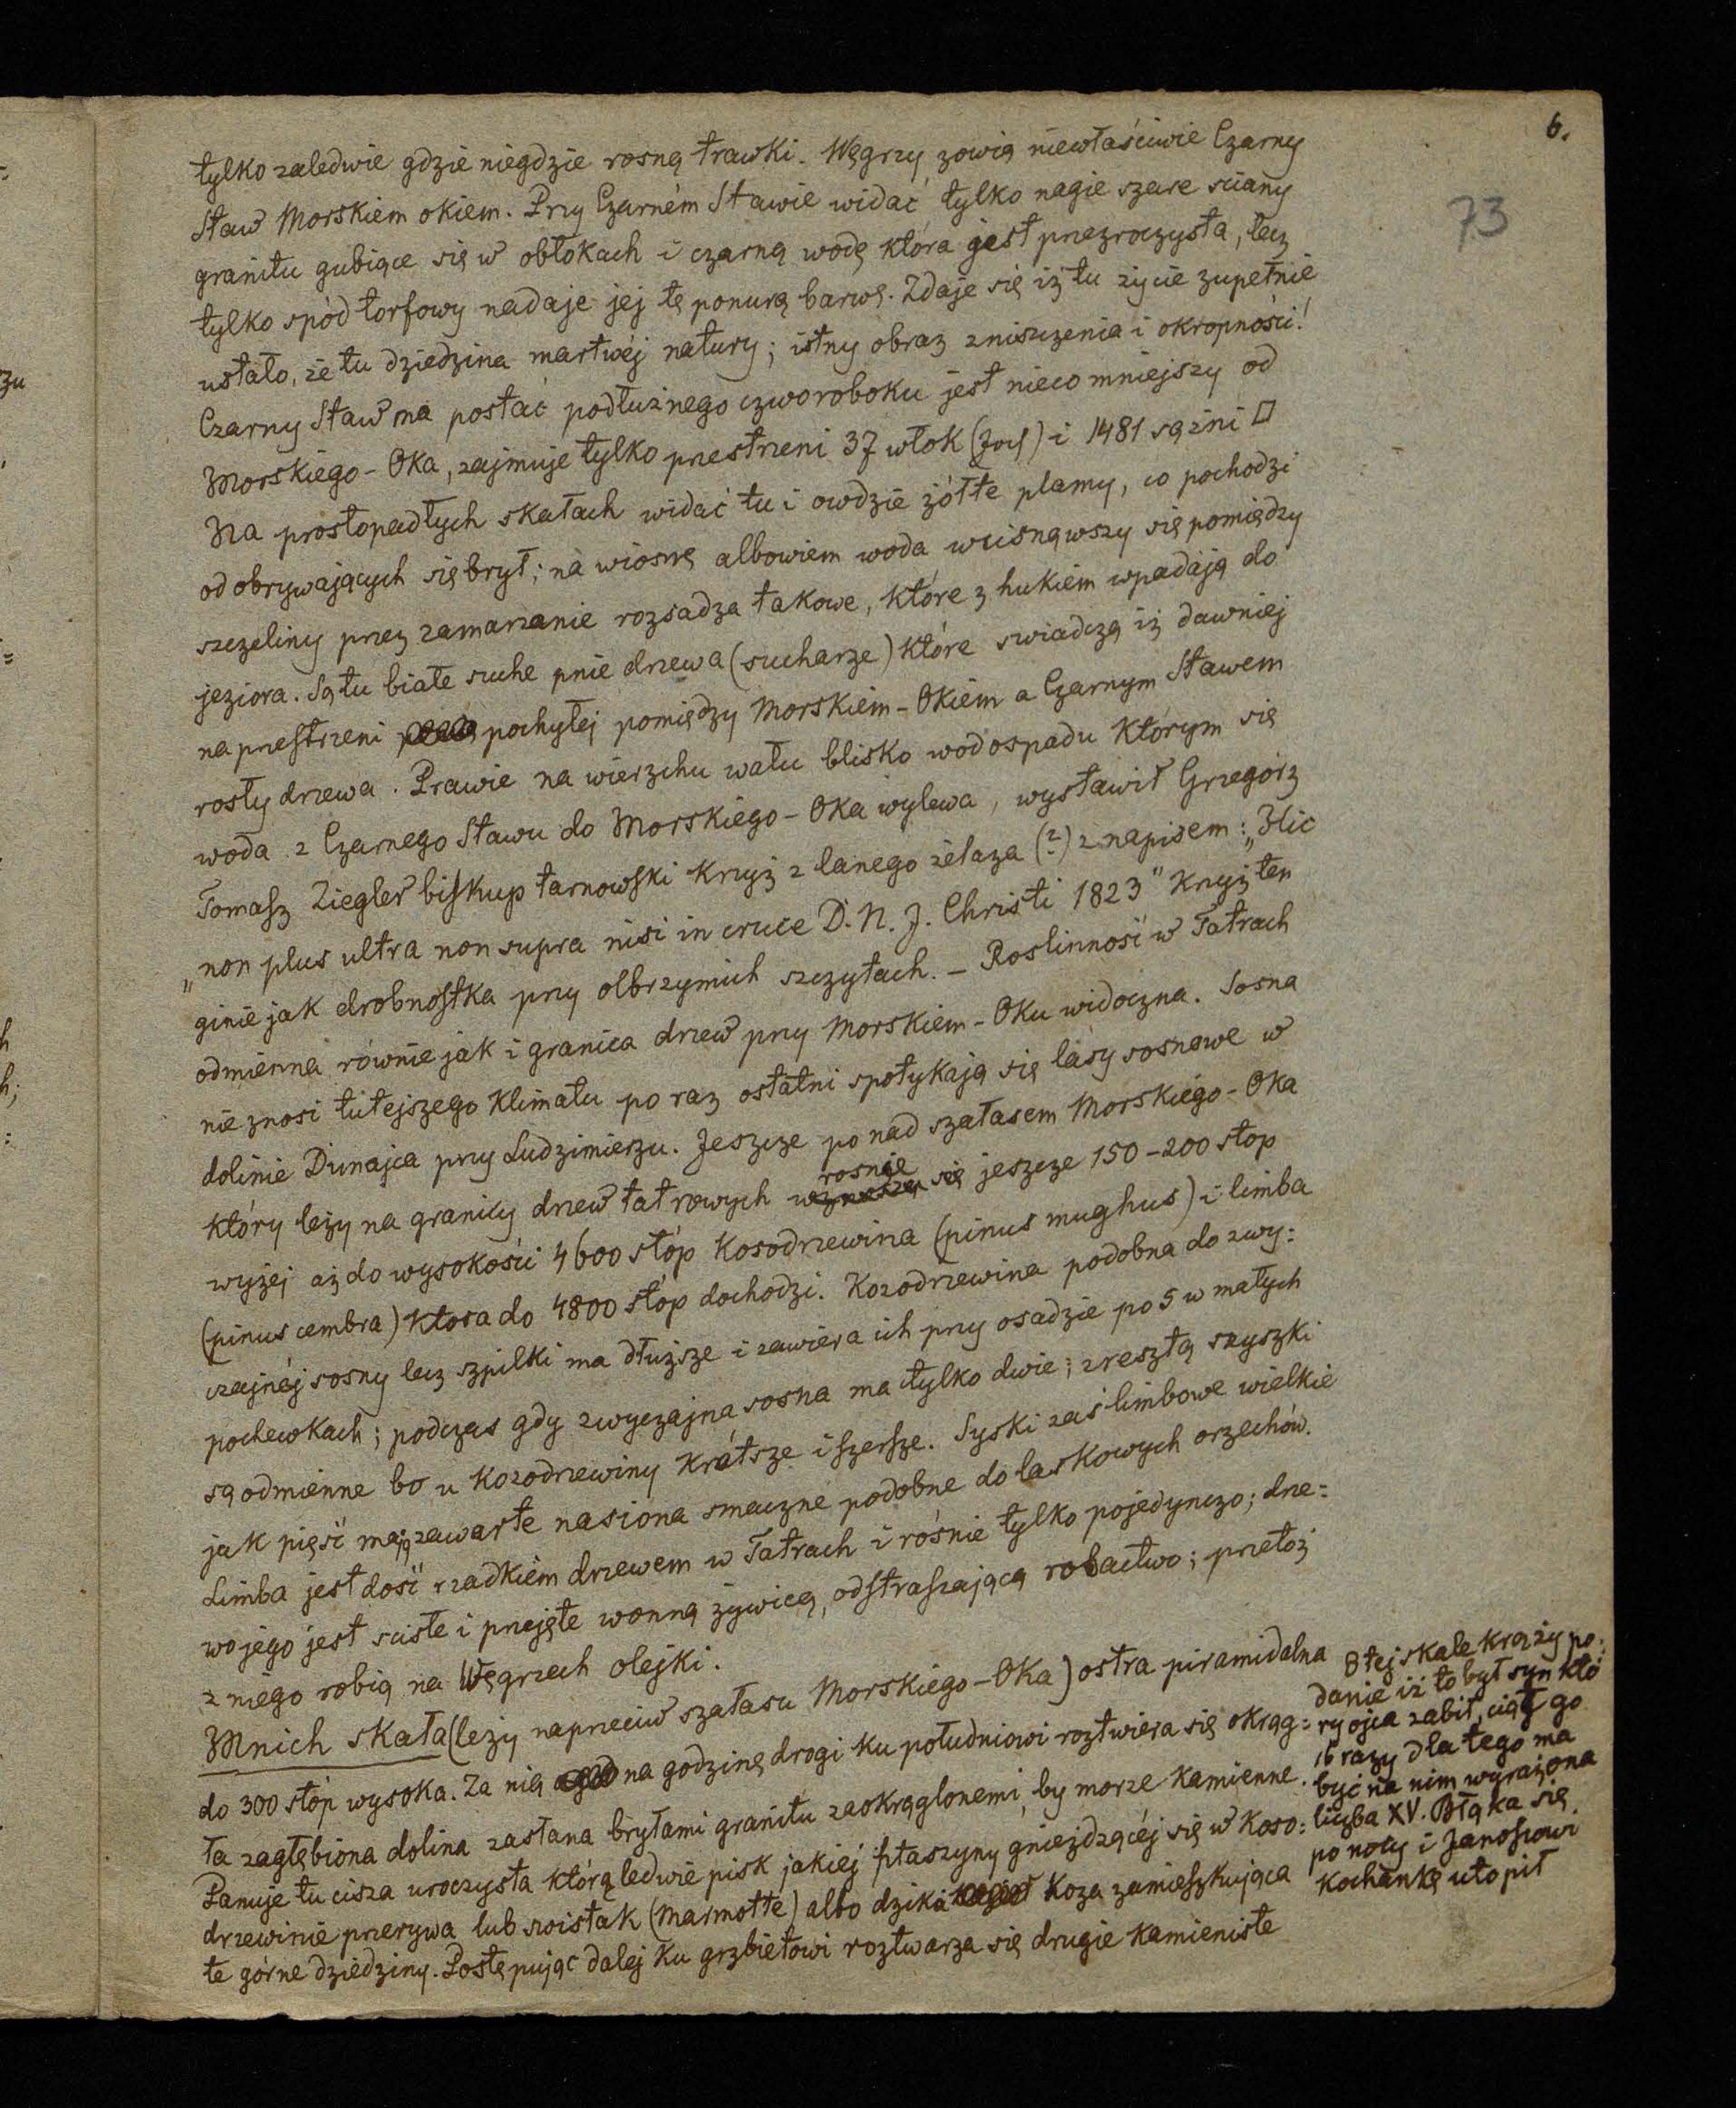 6.
73
tylko zaledwie gdzie niegdzie rosną trawki. Węgrzy zowią niewłaściwie Czarny
Staw Morskiem okiem. Przy Czarném Stawie widać tylko nagie szare sciany
granitu gubiące się w obłokach i czarną wodę która jest przezroczysta, lecz
tylko spód torfowy nadaje jej tę ponurą barwę. Zdaje się iż tu życie zupełnie
ustało, że tu dziedzina martwéj natury; istny obraz zniszczenia i okropności!
Czarny Staw ma postać podłużnego czworoboku jest nieco mniejszy od
Morskiego-Oka, zajmuje tylko przestrzeni 37 włok (Joch) i 1481 sążni □
Na prostopadłych skałach widać tu i owdzie żółte plamy, co pochodzi
od obrywających się brył; na wiosnę albowiem woda wcisnąwszy się pomiędzy
szczeliny przez zamarzanie rozsadza takowe, które z hukiem wpadają do
jeziora. Są tu białe suche pnie drzewa (sucharze) które swiadczą iż dawniej
na przestrzeni pochyłej pomiędzy Morskiem-Okiem a Czarnym Stawem
rosły drzewa. Prawie na wierzchu wału blisko wodospadu którym się
woda z Czarnego Stawu do Morskiego-Oka wylewa, wystawił Grzegórz
Tomasz Ziegler biskup tarnowski Krzyż z lanego żelaza (?) z napisem: „Hic
„non plus ultra non supra nisi in cruce D. N. J. Christi 1823" Krzyż ten
ginie jak drobnostka przy olbrzymich szczytach. – Roslinność w Tatrach
odmienna równie jak i granica drzew przy Morskiem-Oku widoczna. Sosna
nie znosi tutejszego Klimatu po raz ostatni spotykają się lasy sosnowe w
dolinie Dunajca przy Ludzimierzu. Jeszcze ponad szałasem Morskiego-Oka
który leży na granicy drzew tatrowych wznoszą się rosnie jeszcze 150-200 stop
wyżej aż do wysokości 4600 stóp Kosodrzewina (pinus mughus) i limba
(pinus cembra) Ktora do 4800 stóp dochodzi. Kozodrzewina podobna do zwy:
czajnéj sosny lecz szpilki ma dłuższe i zawiera ich przy osadzie po 5 w małych
pochewkach; podczas gdy zwyczajna sosna ma tylko dwie; zresztą szyszki
są odmienne bo u Kozodrzewiny Krótsze i szersze. Syski zaś limbowe wielkie
jak pięść mają zawarte nasiona smaczne podobne do laskowych orzechów.
Limba jest dość rzadkiem drzewem w Tatrach i rośnie tylko pojedynczo; drze=
wo jego jest sciste i przejęte wonną żywicą, odstraszającą robactwo; przetóż
z niego robią na Węgrzech olejki.
Mnich skała (leży naprzeciw szałasu Morskiego-Oka) ostra piramidalna
do 300 stóp wysoka. Za nią na godzinę drogi ku południowi roztwiera się okrąg=
ła zagłębiona dolina zasłana bryłami granitu zaokrąglonemi, by morze Kamienne.
Panuje tu cisza uroczysta którą ledwie pisk jakiej ptaszyny gnieżdżącéj się w Koso:
drzewinie przerywa lub swistak (Marmotte) albo dzika Koza zamieszkująca
te górne dziedziny. Postępując dalej Ku grzbietowi roztwarza się drugie Kamieniste
O tej skale krąży po:
danie iż to był syn któ
ry ojca zabił, ciął go
16 razy dla tego ma
być na nim wyrażona
liczba XV. Błąka się
po nocy i Janosiowi
Kochankę utopił